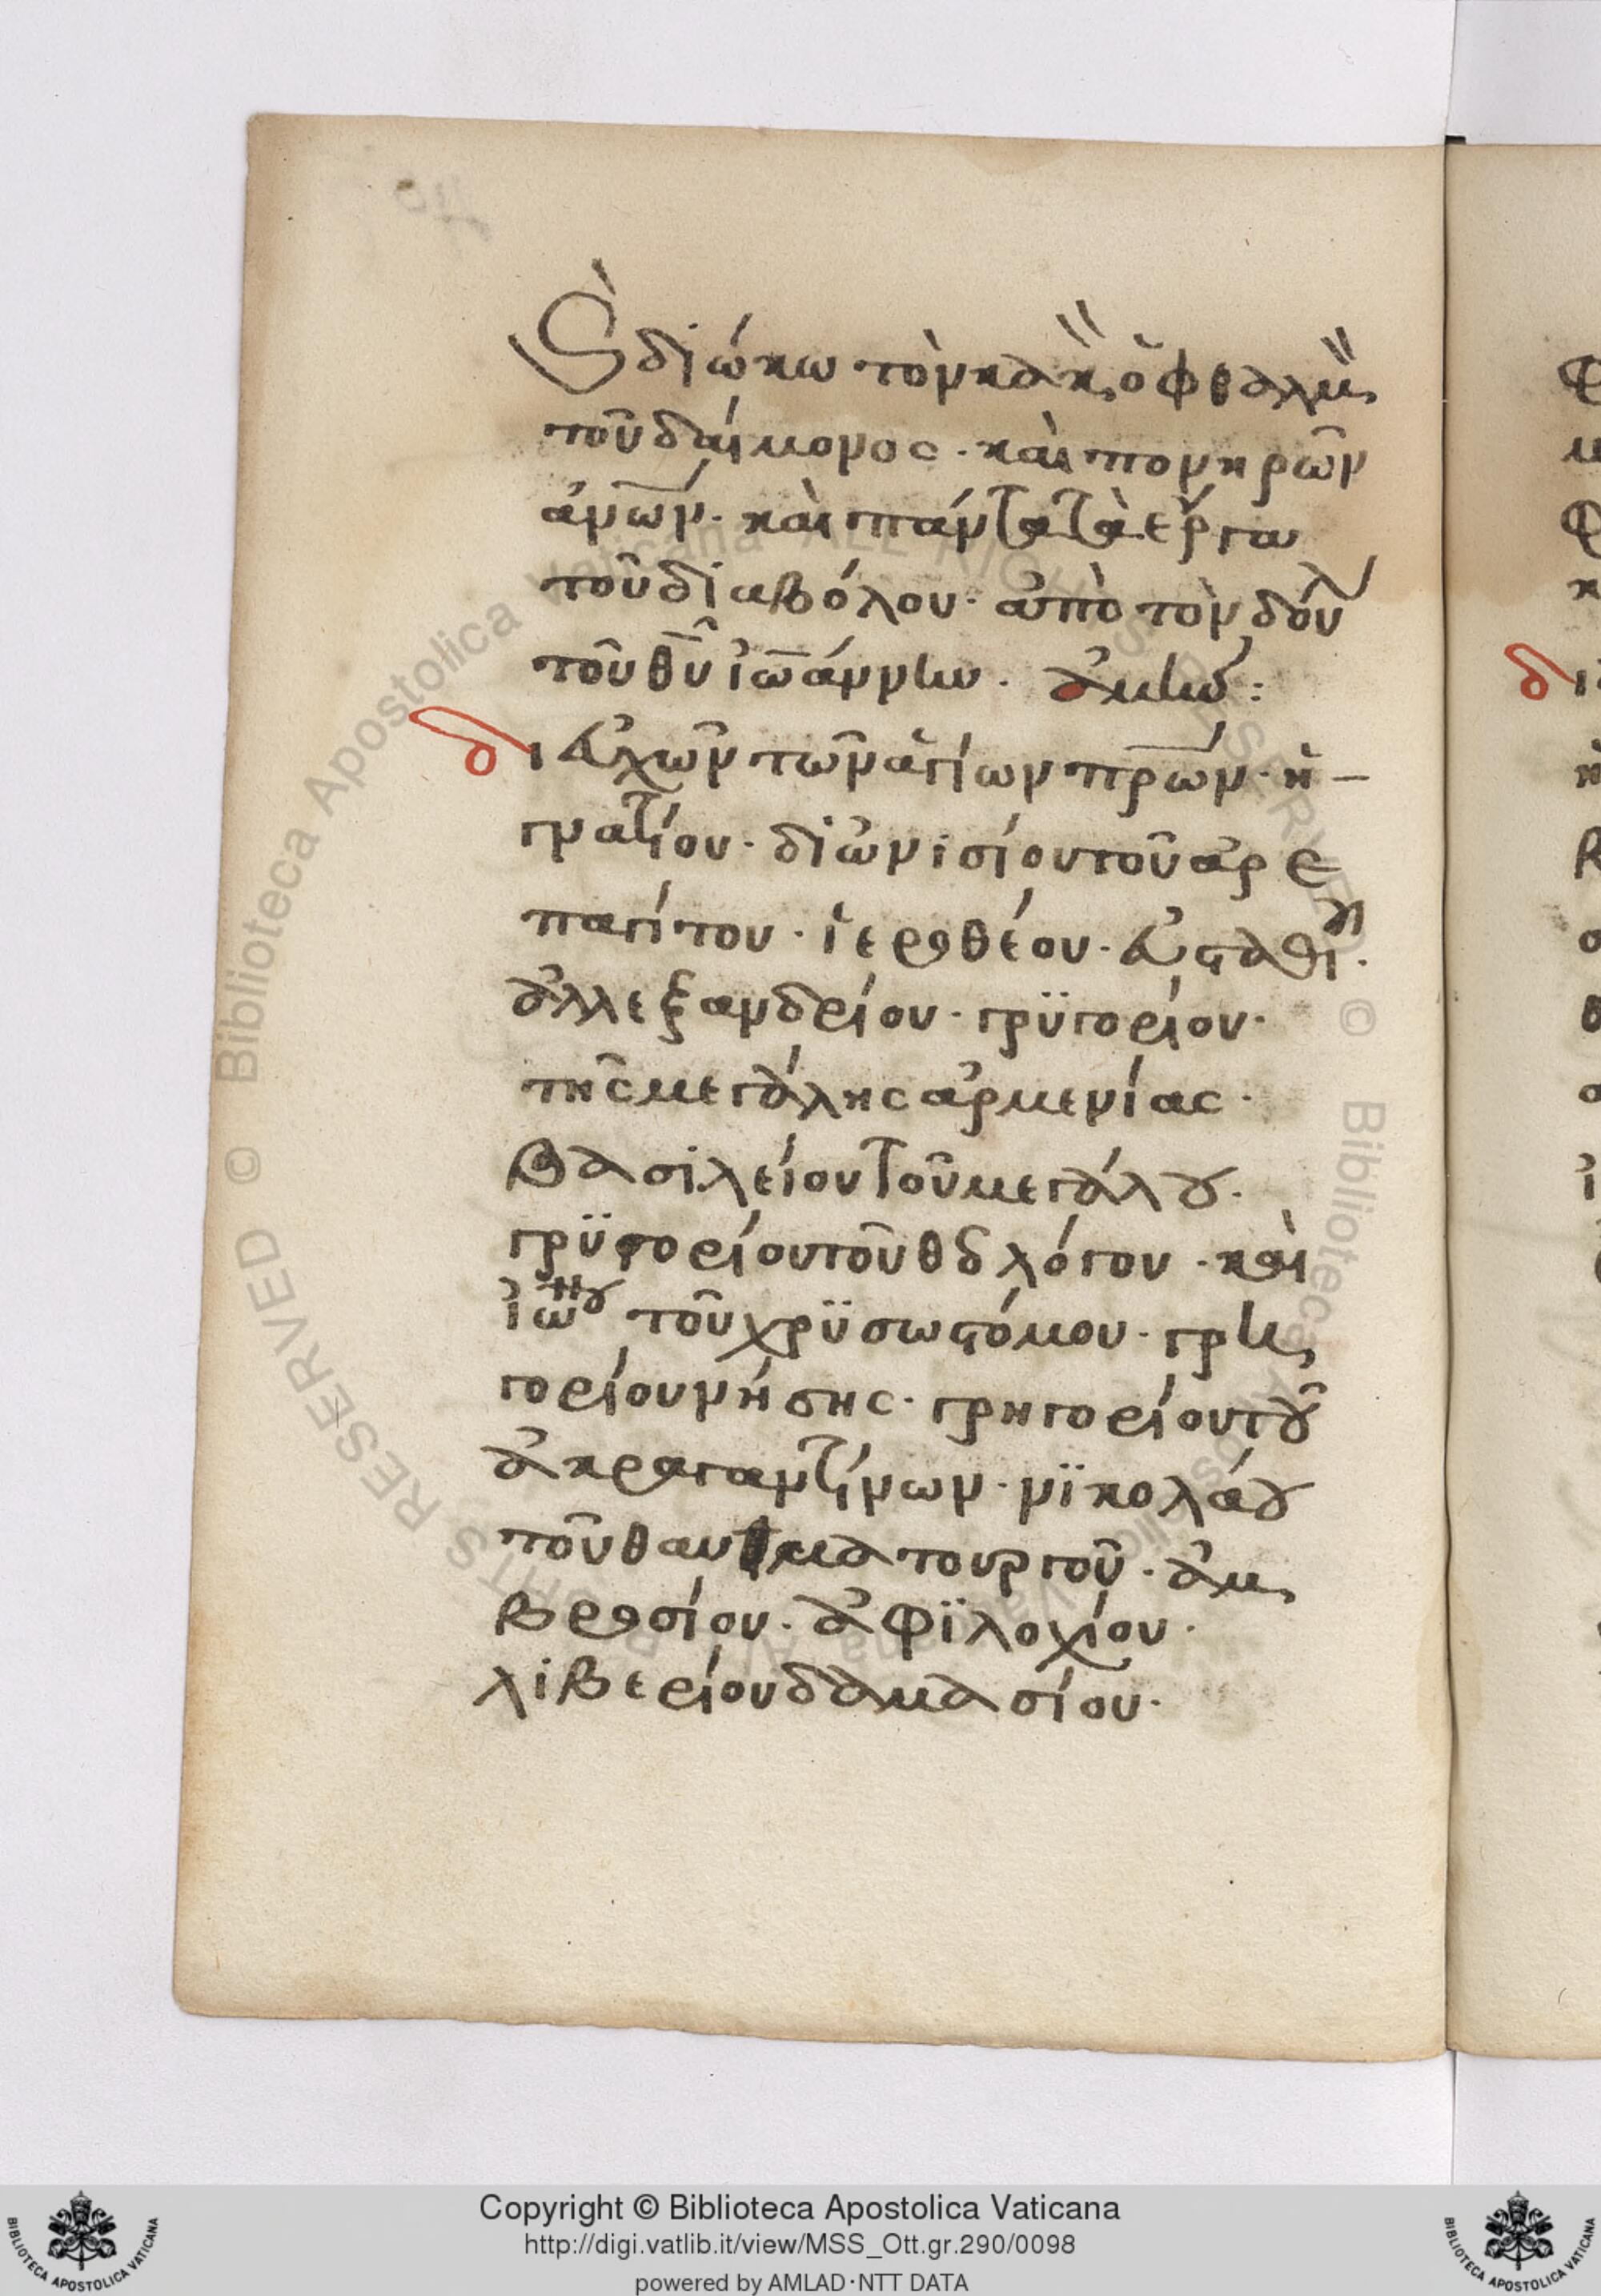 Ὁ διώκω τὸν κακ ὀφθαλμ
τοῦ δαίμονος · καὶ πονηρῶν
ἀνῶν · καὶ πάντα τὰ ἔργα
τοῦ διαβόλου · ἀπὸ τὸν δοῦλ
τοῦ θῦ ἰωάννην · ἀμήν :
δι εὐχῶν τῶν ἁγίων πρῶν · ἠ-
γνατίου · διωνισίου τοῦ ἀρε
παγίτου · ἱεροθέου · εὐσταθίου ·
ἀλλεξανδρίου · γρϋγορίου ·
τῆς μεγάλης ἀρμενίας ·
βασιλείου τοῦ μεγάλου ·
γρϋγορίου τοῦ θεολόγου · καὶ
ἰωου τοῦ χρϋσωστόμου · γρη
γορίου νήσης · γρηγορίου τοῦ
ἀκραγαντίνων · νϊκολάου
τοῦ θαυματουργοῦ · ἀμ
βροσίου · ἀφϊλοχίου ·
λιβερίου δαμασίου ·
Copyright © Biblioteca Apostolica Vaticana
http://digi.vatlib.it/view/MSS_Ott.gr.290/0098
powered by AMLAD·NTT DATA